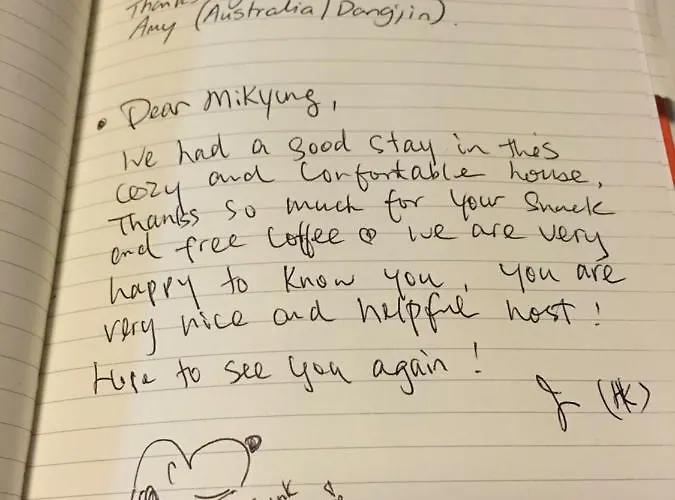 Thank
Amy (Australia / Dangjin).
• Dear Mikyung,
We had a good stay in this
cozy and confortable house,
Thanks so much for your snack
and free coffee we are very
happy to know you, you are
very nice and helpful host!
Hope to see you again!
(HK)